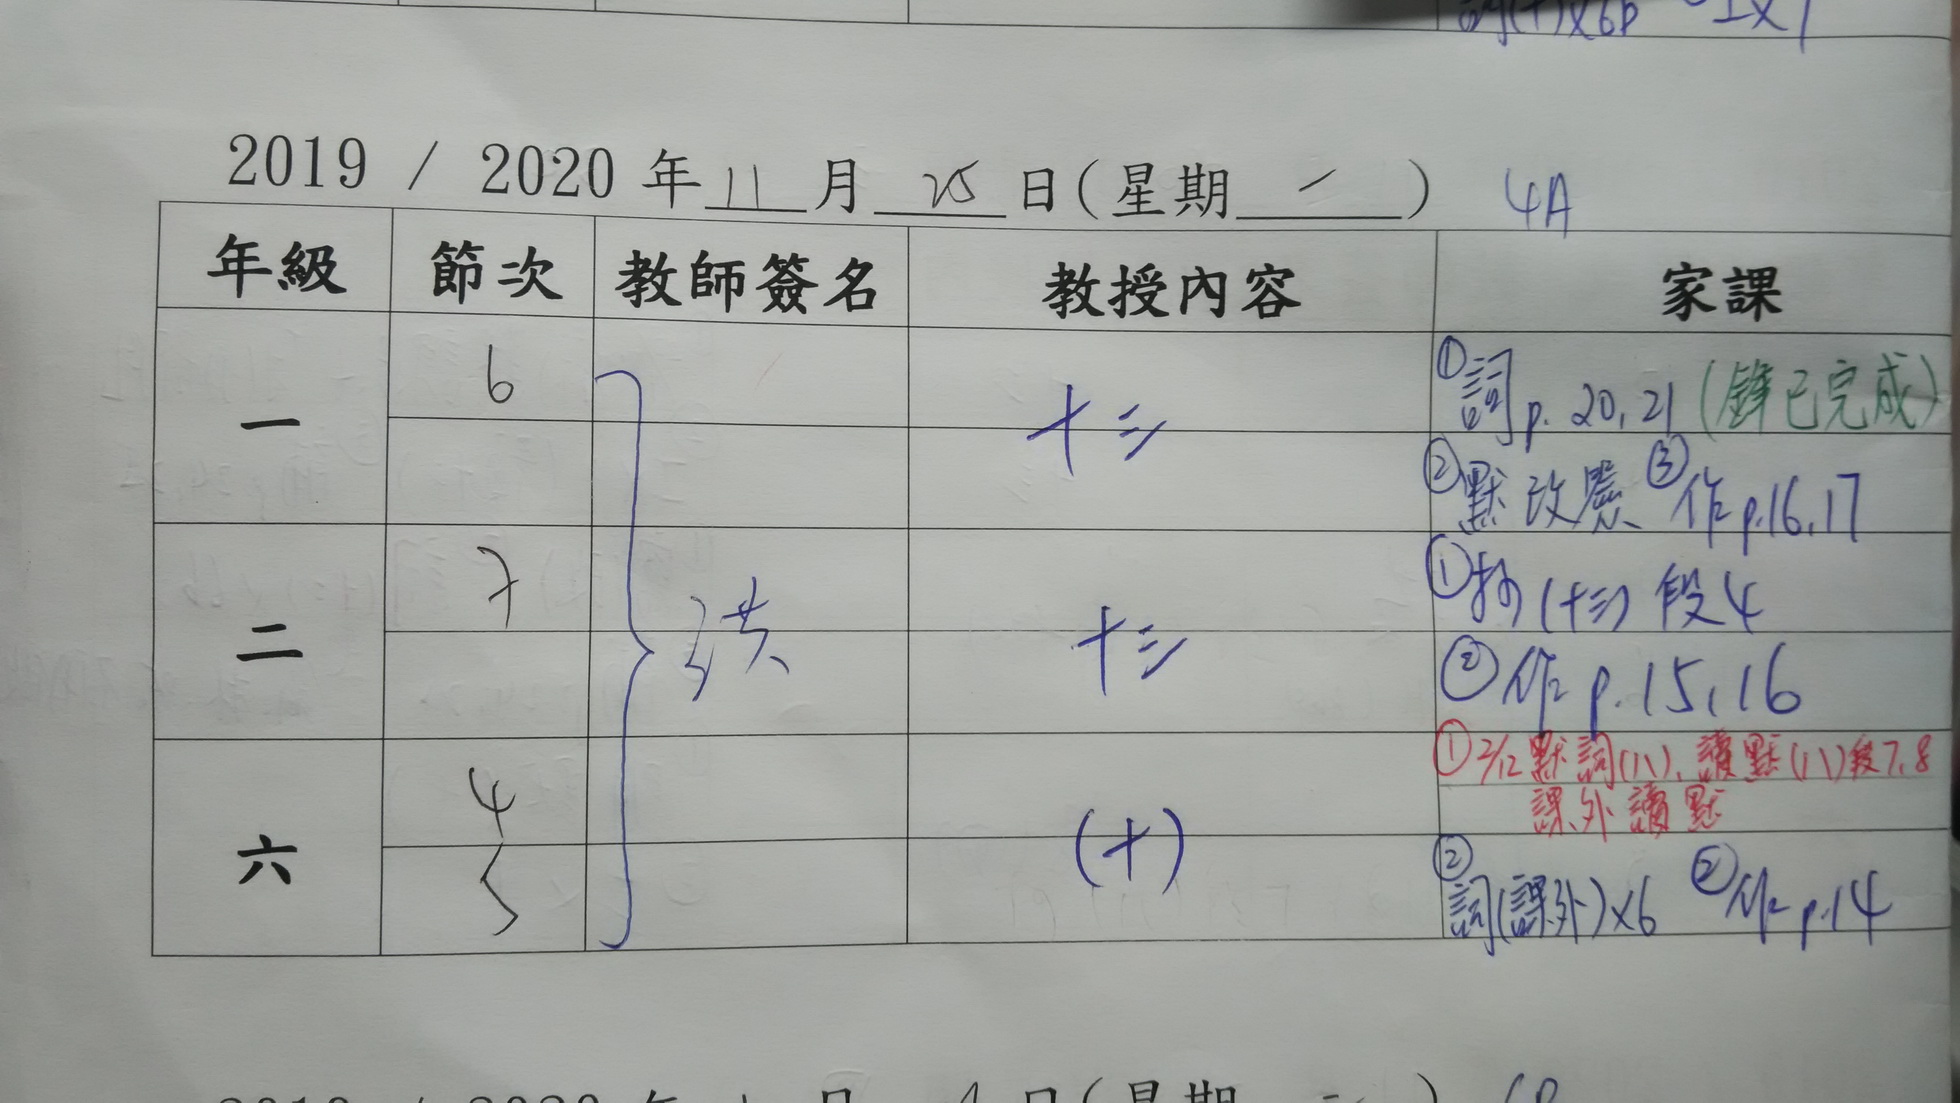 詞(十)x6p
2019 / 2020 年 11 月 25 日(星期 一 ) 4A
年級 節次 教師簽名 教授內容 家課
一 6 十三 ①詞 p. 20, 21 (鋒已完成)
②默改 ③作 p.16, 17
二 7 洪 十三 ①抄(十三) 段4
②作 p. 15, 16
六 4 (十) ①2/12 默詞(八), 讀默(八)段7, 8
課外讀默
5 ②詞(課外)x6 ②作 p.14
2019 / 2020 年 月 日(星期 二 )